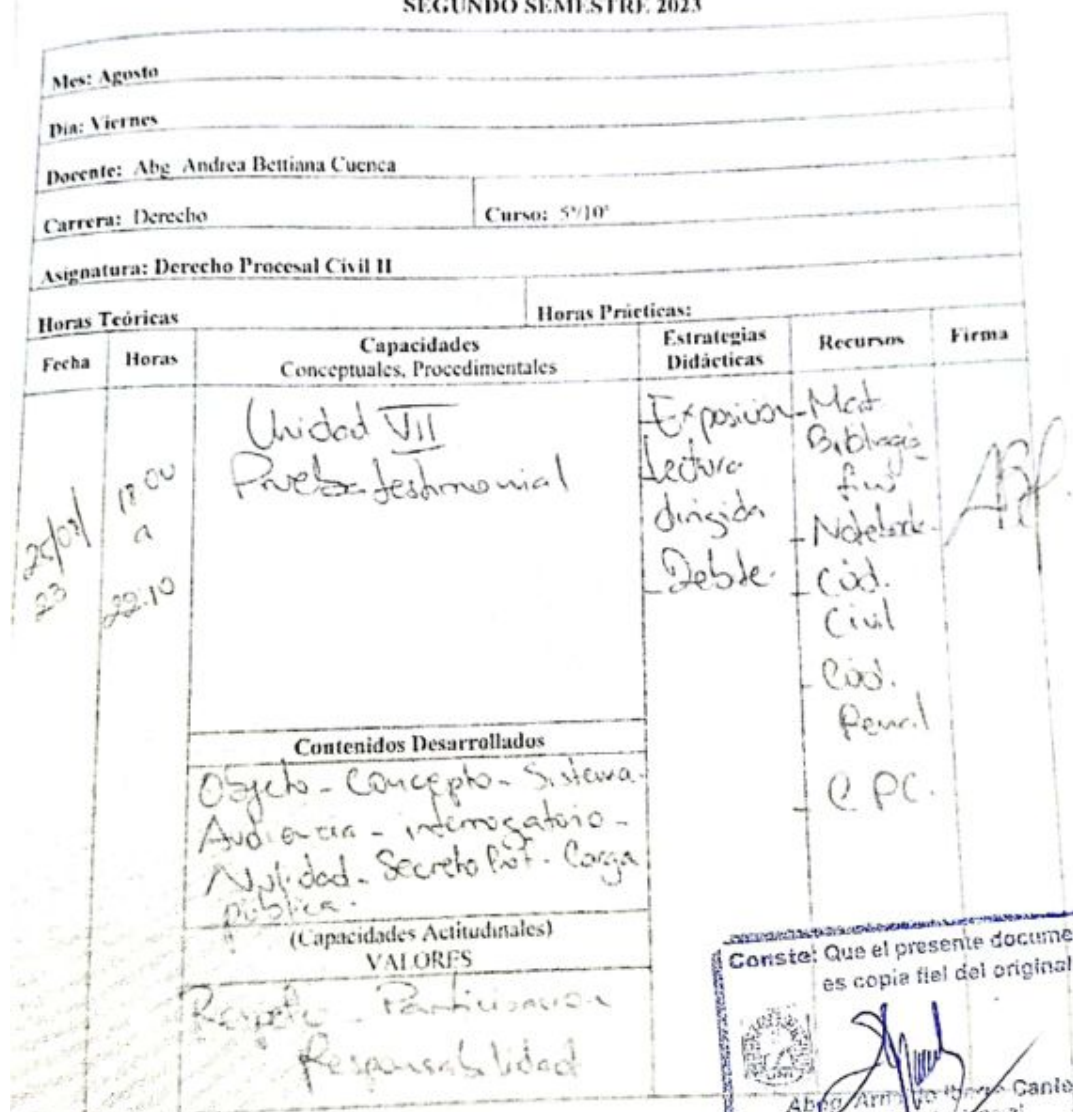 SEGUNDO SEMESTRE 2023
Mes: Agosto
Día: Viernes
Docente: Abg. Andrea Bettiana Cuenca
Carrera: Derecho
Curso: 5º/10º
Asignatura: Derecho Procesal Civil II
Horas Teóricas
Horas Prácticas:
Fecha
Horas
Capacidades
Conceptuales, Procedimentales
Estrategias
Didácticas
Recursos
Firma
25/08/
23
a
22:10
Unidad VII
Prueba testimonial
- Exposición
Lectura
dirigida
- Debate.
- Mat
- Notebook.
- Cód.
Civil
- Cód.
Penal
- C.P.C.
Contenidos Desarrollados
Objeto - Concepto - Sistema.
Audiencia - interrogatorio -
Nulidad - Secreto Prof - Carga
pública.
(Capacidades Actitudinales)
VALORES
Respeto - Participación
Responsabilidad
Conste: Que el presente docume
es copia fiel del original
Abog.